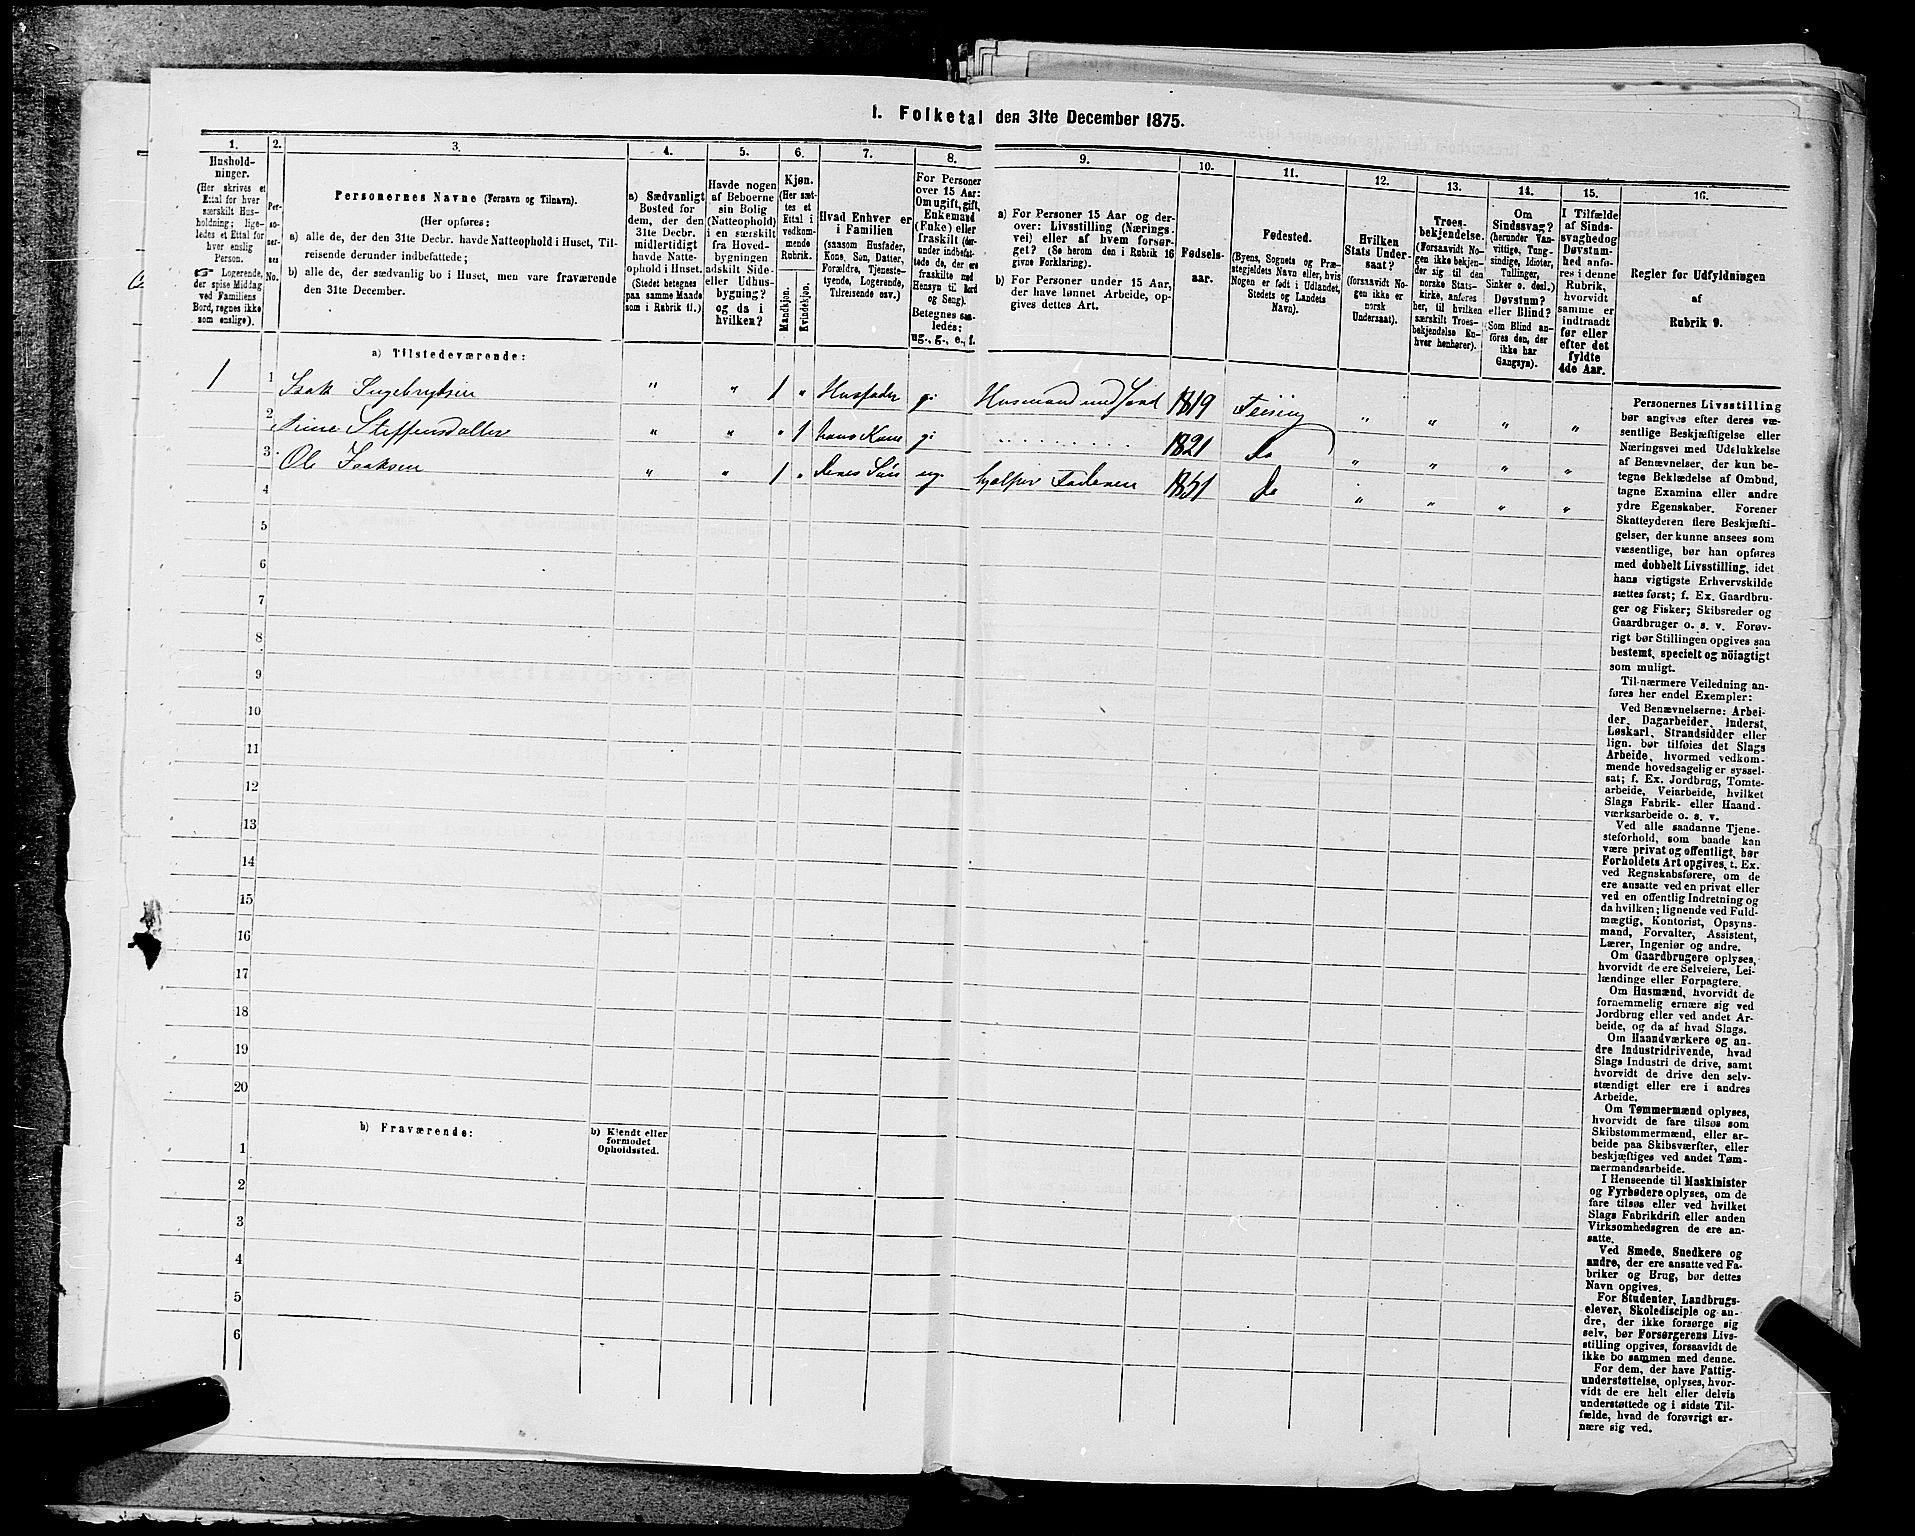 1. Folketal den 31te December 1875.
1. 2. 3. 4. 5. 6. 7. 8. 9. 10. 11. 12. 13. 14. 15. 16.
Hushold-
ninger.
(Her skrives et
Ettal for hver
særskilt Hus-
holdning; lige-
ledes et Ettal for
hver enslig
Person.
☞ Logerende,
der spise Middag
ved Familiens
Bord, regnes ikke
som enslige).
Per-
so-
ner-
nes
No.
Personernes Navne (Fornavn og Tilnavn).
(Her opføres:
a) alle de, der den 31te Decbr. havde Natteophold i Huset, Til-
reisende derunder indbefattede;
b) alle de, der sædvanlig bo i Huset, men vare fraværende
den 31te December.
a) Sædvanligt
Bosted for
dem, der den
31te Decbr.
midlertidigt
havde Natte-
ophold i Huset.
(Stedet betegnes
paa samme Maade
som i Rubrik 11.)
Havde nogen
af Beboerne
sin Bolig
(Natteophold)
i en særskilt
fra Hoved-
bygningen
adskilt Side-
eller Udhus-
bygning?
og da i
hvilken?
Kjøn.
(Her sæt-
tes et
Ettal i
vedkom-
mende
Rubrik.
Mandkjøn.
Kvindekjøn.
Hvad Enhver er
i Familien
(saasom Husfader,
Kone, Søn, Datter,
Forældre, Tjeneste-
tyende, Logerende,
Tilreisende osv.)
For Personer
over 15 Aar:
Om ugift, gift,
Enkemand
(Enke) eller
fraskilt (der-
under indbefat-
tede de, der ere
fraskilte med
Hensyn til Bord
og Seng).
Betegnes saa-
ledes:
ug., g., e., f.
a) For Personer 15 Aar og der-
over: Livsstilling (Nærings-
vei) eller af hvem forsør-
get? (Se herom den i Rubrik 16
givne Forklaring).
b) For Personer under 15 Aar,
der have lønnet Arbeide, op-
gives dettes Art.
Fødsels-
aar.
Fødested.
(Byens, Sognets og Præ-
stegjeldets Navn eller, hvis
Nogen er født i Udlandet,
Stedets og Landets
Navn).
Hvilken
Stats Under-
saat?
(forsaavidt No-
gen ikke er
norsk
Undersaat).
Troes-
bekjendelse.
(Forsaavidt No-
gen ikke bekjen-
der sig til den
norske Stats-
kirke, anføres
her, til hvilken
særskilt Troes-
bekjendelse En-
hver henhører).
Om
Sindssvag?
(herunder Van-
vittige, Tung-
sindige, Idioter,
Tullinger,
Sinker o. desl.)
Døvstum?
eller Blind?
(Som Blind an-
føres den, der
ikke har
Gangsyn).
I Tilfælde
af Sinds-
svaghed og
Døvstum-
hed anfø-
res i denne
Rubrik,
hvorvidt
samme er
indtraadt
før eller
efter det
fyldte
4de Aar.
Regler før Udfyldningen
af
Rubrik 9.
a) Tilstedeværende:
1 1 Isak Ingebrigtsen " " 1 " Husfader gi Husmand med Jord 1819 " " " "
2 Steffensdatter " " " 1 hans Kone gi 1821 do " " " "
3 Ole Isaksen " " 1 " deres Søn ug. hjelper Faderen 1851 do " " " "
4
5
6
7
8
9
10
11
12
13
14
15
16
17
18
19
20
b) Fraværende:
b) Kjendt eller
formodet
Opholdssted.
1
2
3
4
5
6
Personernes Livsstilling
bør angives efter deres væ-
sentlige Beskjæftigelse eller
Næringsvei med Udelukkelse
af Benævnelser, der kun be-
tegne Beklædelse af Ombud,
tagne Examina eller andre
ydre Egenskaber. Forener
Skatteyderen flere Beskjæfti-
gelser, der kunne ansees som
væsentlige, bør han opføres
med dobbelt Livsstilling, idet
hans vigtigste Erhvervskilde
sættes først; f. Ex. Gaardbru-
ger og Fisker; Skibsreder og
Gaardbruger o. s. v. Forøv-
rigt bør Stillingen opgives saa
bestemt, specielt og nöiagtigt
som muligt.
Til nærmere Veiledning an-
føres her endel Exempler:
Ved Benævnelserne: Arbei-
der, Dagarbeider, Inderst,
Løskarl, Strandsidder eller
lign. bør tilføies det Slags
Arbeide, hvormed vedkom-
mende hovedsagelig er syssel-
sat; f. Ex. Jordbrug, Tomte-
arbeide, Veiarbeide, hvilket
Slags Fabrik- eller Haand-
værksarbeide o. s. v.
Ved alle saadanne Tjene-
steforhold, som baade kan
være privat og offentligt, bør
Forholdets Art opgives, t. Ex.
ved Regnskabsførere, om de
ere ansatte ved en privat eller
ved en offentlig Indretning og
da hvilken; lignende ved Fuld-
mægtig, Kontorist, Opsyns-
mand, Forvalter, Assistent,
Lærer, Ingeniør og andre.
Om Gaardbrugere oplyses,
hvorvidt de ere Selveiere, Lei-
lændinge eller Forpagtere.
Om Husmænd, hvorvidt de
fornemmelig ernære sig ved
Jordbrug eller ved andet Ar-
beide, og da af hvad Slags.
Om Haandværkere og an-
dre Industridrivende, hvad
Slags Industri de drive, samt
hvorvidt de drive den selv-
stændigt eller ere i andres
Arbeide.
Om Tømmermænd oplyses,
hvorvidt de fare tilsøs som
Skibstømmermænd, eller ar-
beide paa Skibsværfter, eller
beskjæftiges ved andet Tøm-
mermandsarbeide.
I Henseende til Maskinister
og Fyrbødere oplyses, om de
fare tilsøs eller ved hvilket
Slags Fabrikdrift eller anden
Virksomhedsgren de ere an-
satte.
Ved Smede, Snedkere og
andre, der ere ansatte ved Fa-
briker og Brug, bør dettes
Navn opgives.
For Studenter, Landbrugs-
elever, Skoledisciple og an-
dre, der ikke forsørge sig
selv, bør Forsørgerens Livs-
stilling opgives, forsaavidt de
ikke bo sammen med denne.
For dem, der have Fattig-
understøttelse, oplyses, hvor-
vidt de ere helt eller delvis
understøttede og i sidste Til-
fælde, hvad de forøvrigt er-
nære sig ved.